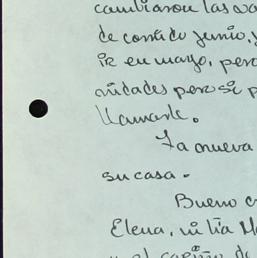 cambiaron las va
de corrido junio, y
ir en mayo, pero
nidades pero si p
llamarle.
Ya nueva
su casa.
Bueno c
Elena, ni tia Ma
el cariño de